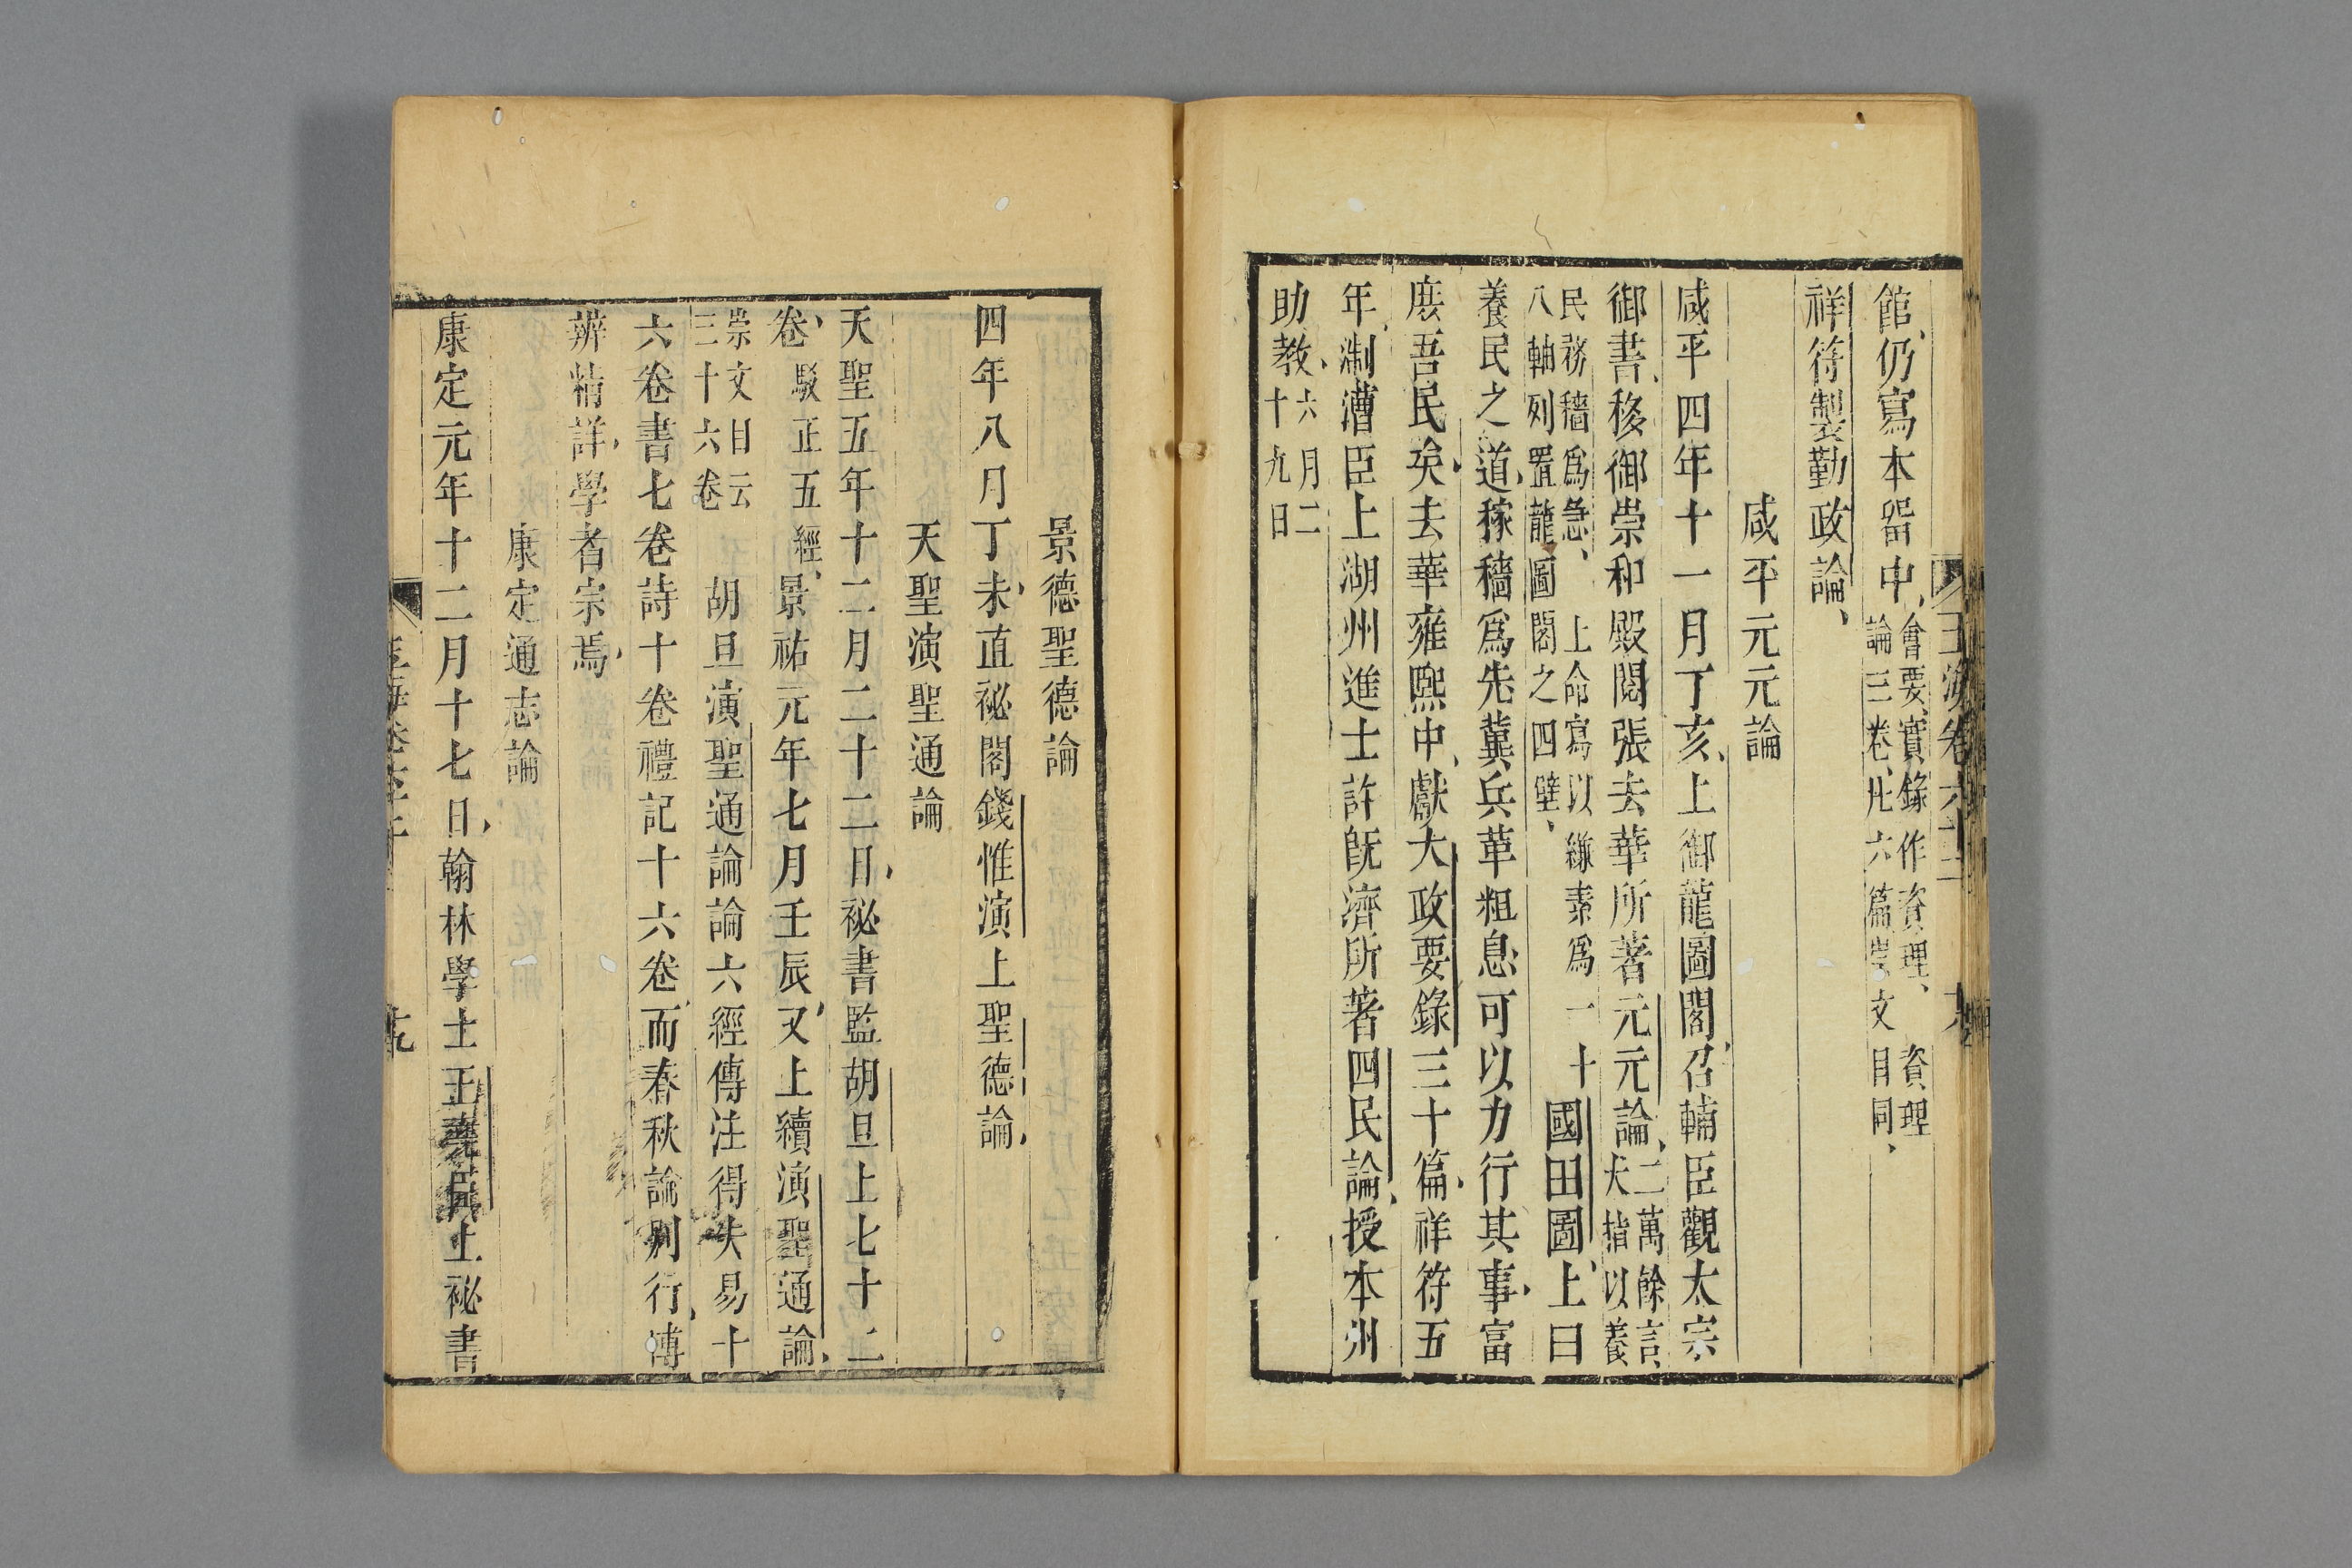 館仍寫本畱中會要實錄作資理、資理
論三卷、凡六篇崇文目同、
祥符製勤政論、
咸平元元論
咸平四年十一月丁亥、上御龍圖閣、召輔臣觀太宗
御書、移御崇和殿閱張去華所著元元論、二萬餘言、
大指以養
民務穡爲急、上命寫以縑素爲一十
八軸列置龍圖閣之四壁、國田圖、上曰
養民之道、稼穡爲先、冀兵革粗息、可以力行其事、富
庶吾民矣、去華雍熙中、獻大政要錄三十篇、祥符五
年、淛漕臣上湖州進士許旣濟所著四民論、授本州
助教、六月二
十九日
景德聖德論
四年八月丁未、直祕閣錢惟演上聖德論、
天聖演聖通論
天聖五年十二月二十二日、祕書監胡旦上七十二
卷、駁正五經、景祐元年七月壬辰、又上續演聖通論、
崇文目云
三十六卷胡旦演聖通論論六經傳注得失易十
六卷書七卷詩十卷禮記十六卷、而春秋論別行、博
辨精詳、學者宗焉、
康定通志論
康定元年十二月十七日、翰林學士王堯臣上祕書